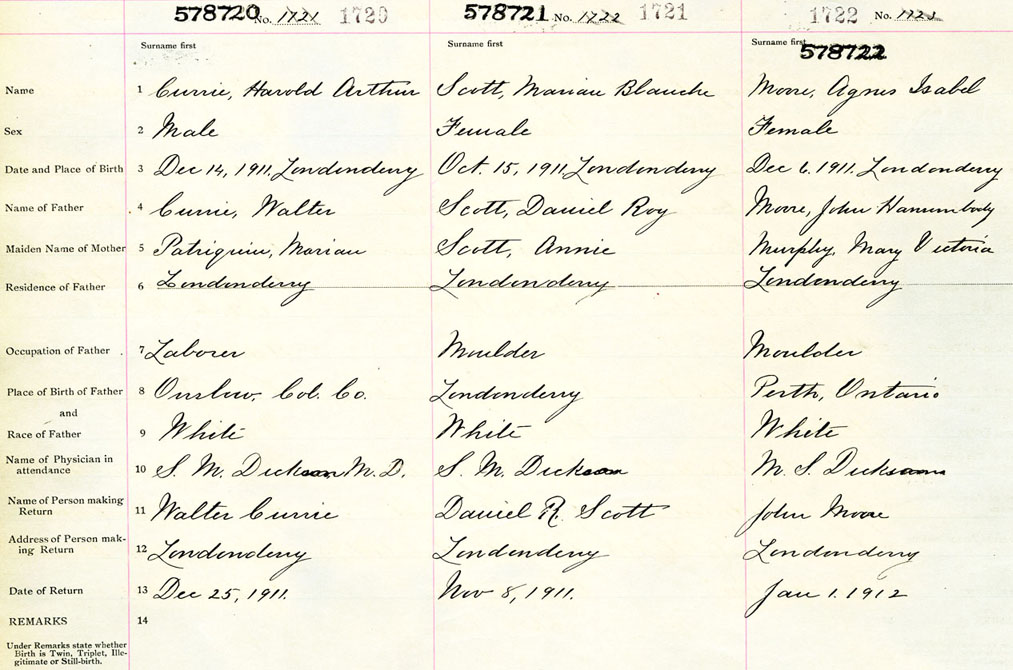 578720 No. 1721 1720 578721 No. 1722 1721 1722 No. 1723
Surname first Surname first Surname first 578722
Name 1 Currie, Harold Arthur Scott, Marian Blanche Moore, Agnes Isabel
Sex 2 Male Female Female
Date and Place of Birth 3 Dec 14, 1911. Londonderry Oct. 15, 1911. Londonderry Dec 6. 1911. Londonderry
Name of Father 4 Currie, Walter Scott, Daniel Roy Moore, John
Maiden Name of Mother 5 Patriquin, Marian Scott, Annie Murphy, Mary Victoria
Residence of Father 6 Londonderry Londonderry Londonderry
Occupation of Father 7 Laborer Moulder Moulder
Place of Birth of Father 8 Onslow, Col. Co. Londonderry Perth, Ontario
and
Race of Father 9 White White White
Name of Physician in
attendance 10 S. M. Dickson, M. D. S. M. Dickson M. S. Dickson
Name of Person making
Return 11 Walter Currie Daniel R. Scott John Moore
Address of Person mak-
ing Return 12 Londonderry Londonderry Londonderry
Date of Return 13 Dec 25, 1911. Nov 8, 1911. Jan 1. 1912
REMARKS 14
Under Remarks state whether
Birth is Twin, Triplet, Ille-
gitimate or Still-birth.